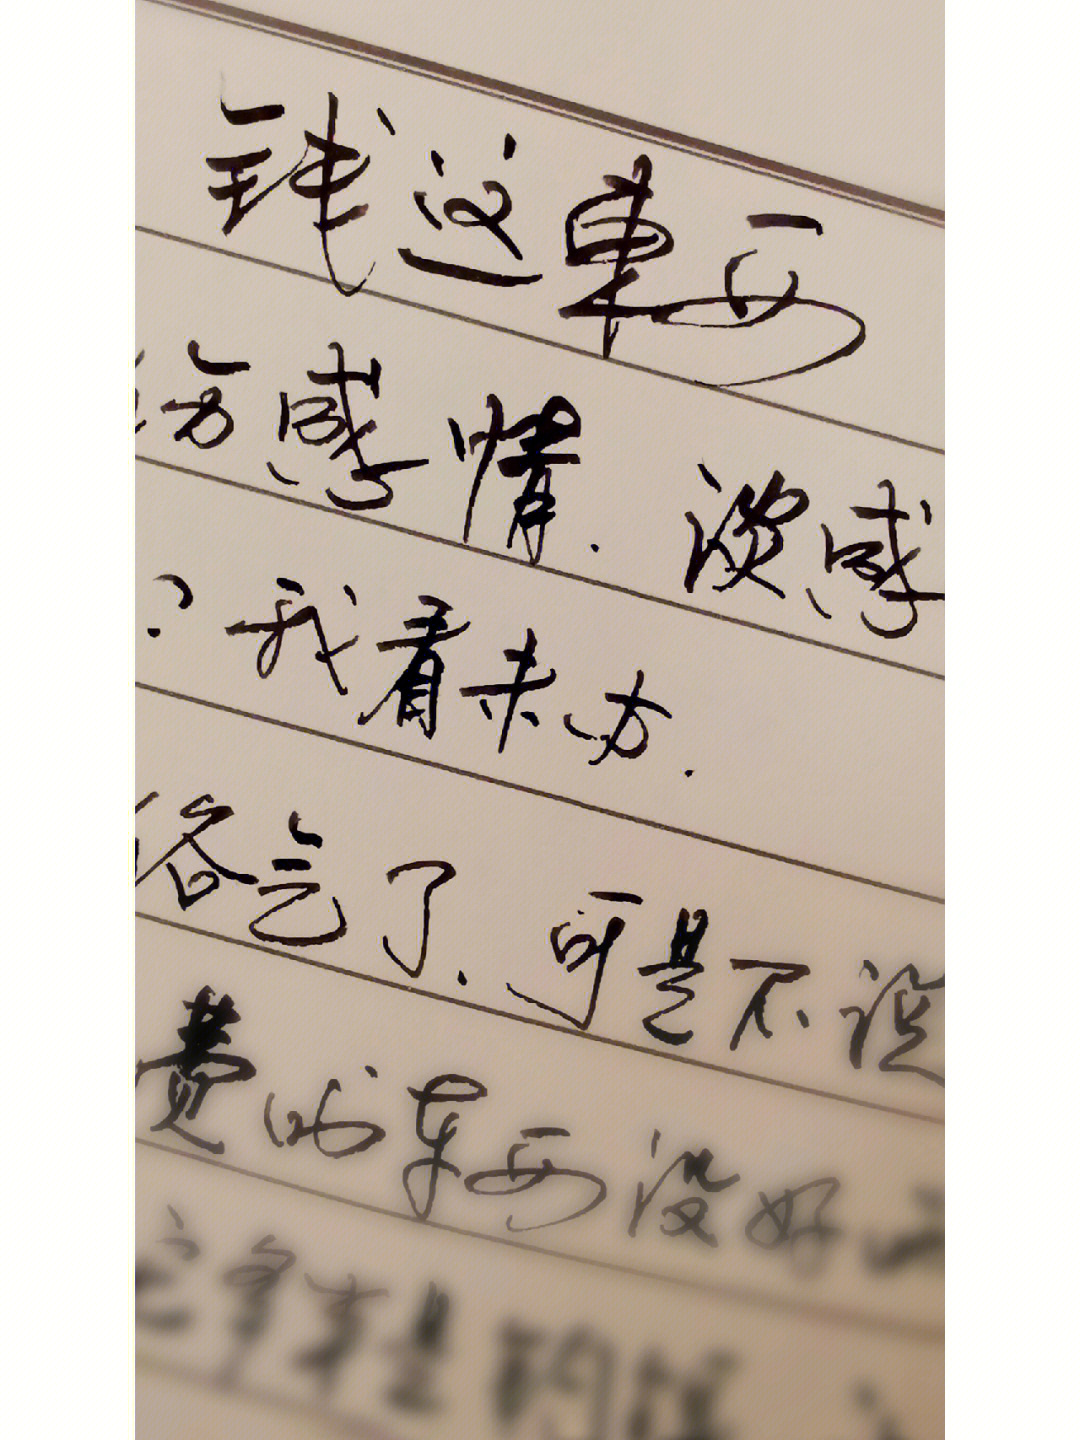 钱这东西
伤感情.谈感
?我看未必.
俗气了.可是不说
费的东西没好